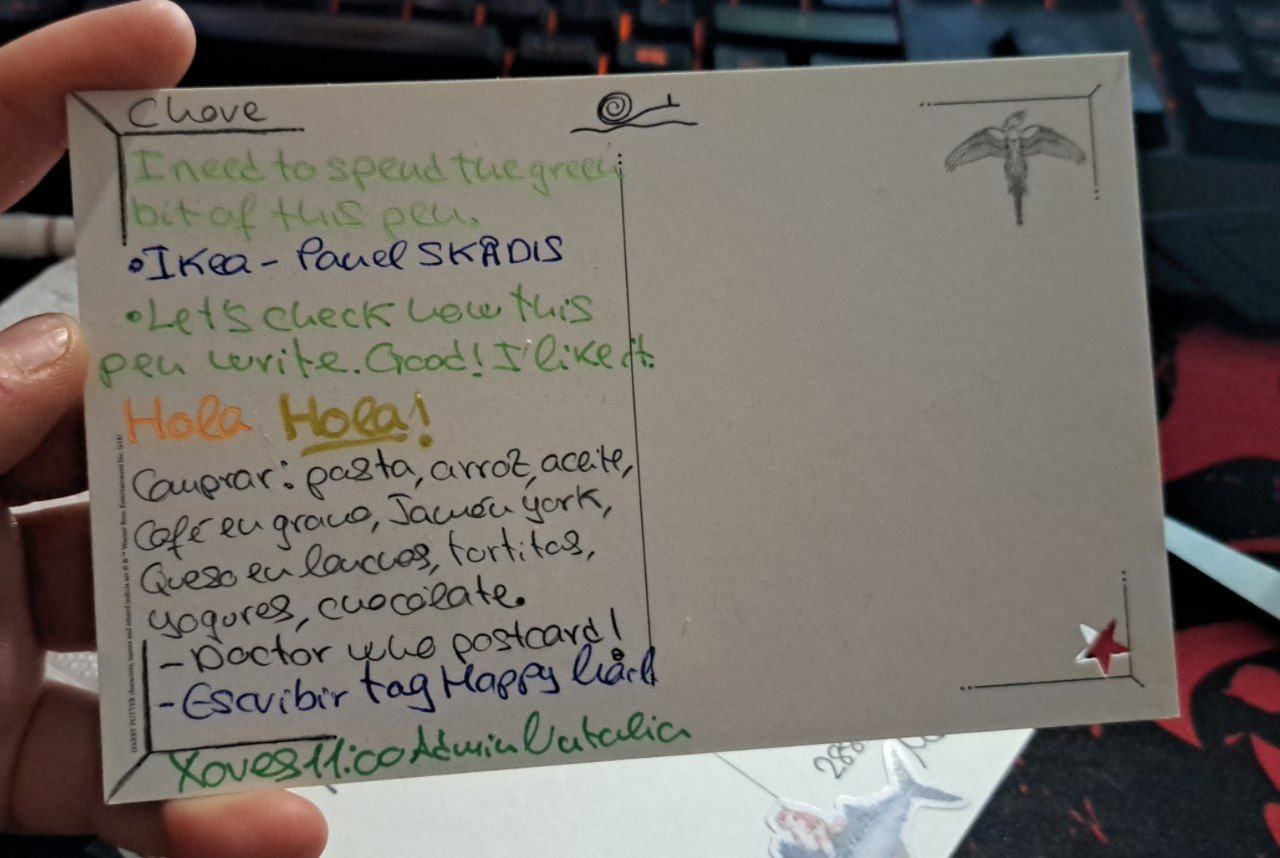 Chove
I need to spend the green
bit of this pen.
•Ikea - Panel SKÅDIS
•Let's check how this
pen write. Good! I like it.
Hola Hola!
Comprar: pasta, arroz, aceite,
Café en grano, Jamón york,
Queso en lonchas, tortitas,
yogures, chocolate.
- Doctor who postcard!
- Escribir tag Happy
Xoves 11:00 Admin Natalia
HARRY POTTER characters, names and related indicia are © & ™ Warner Bros. Entertainment Inc. (s18)
286